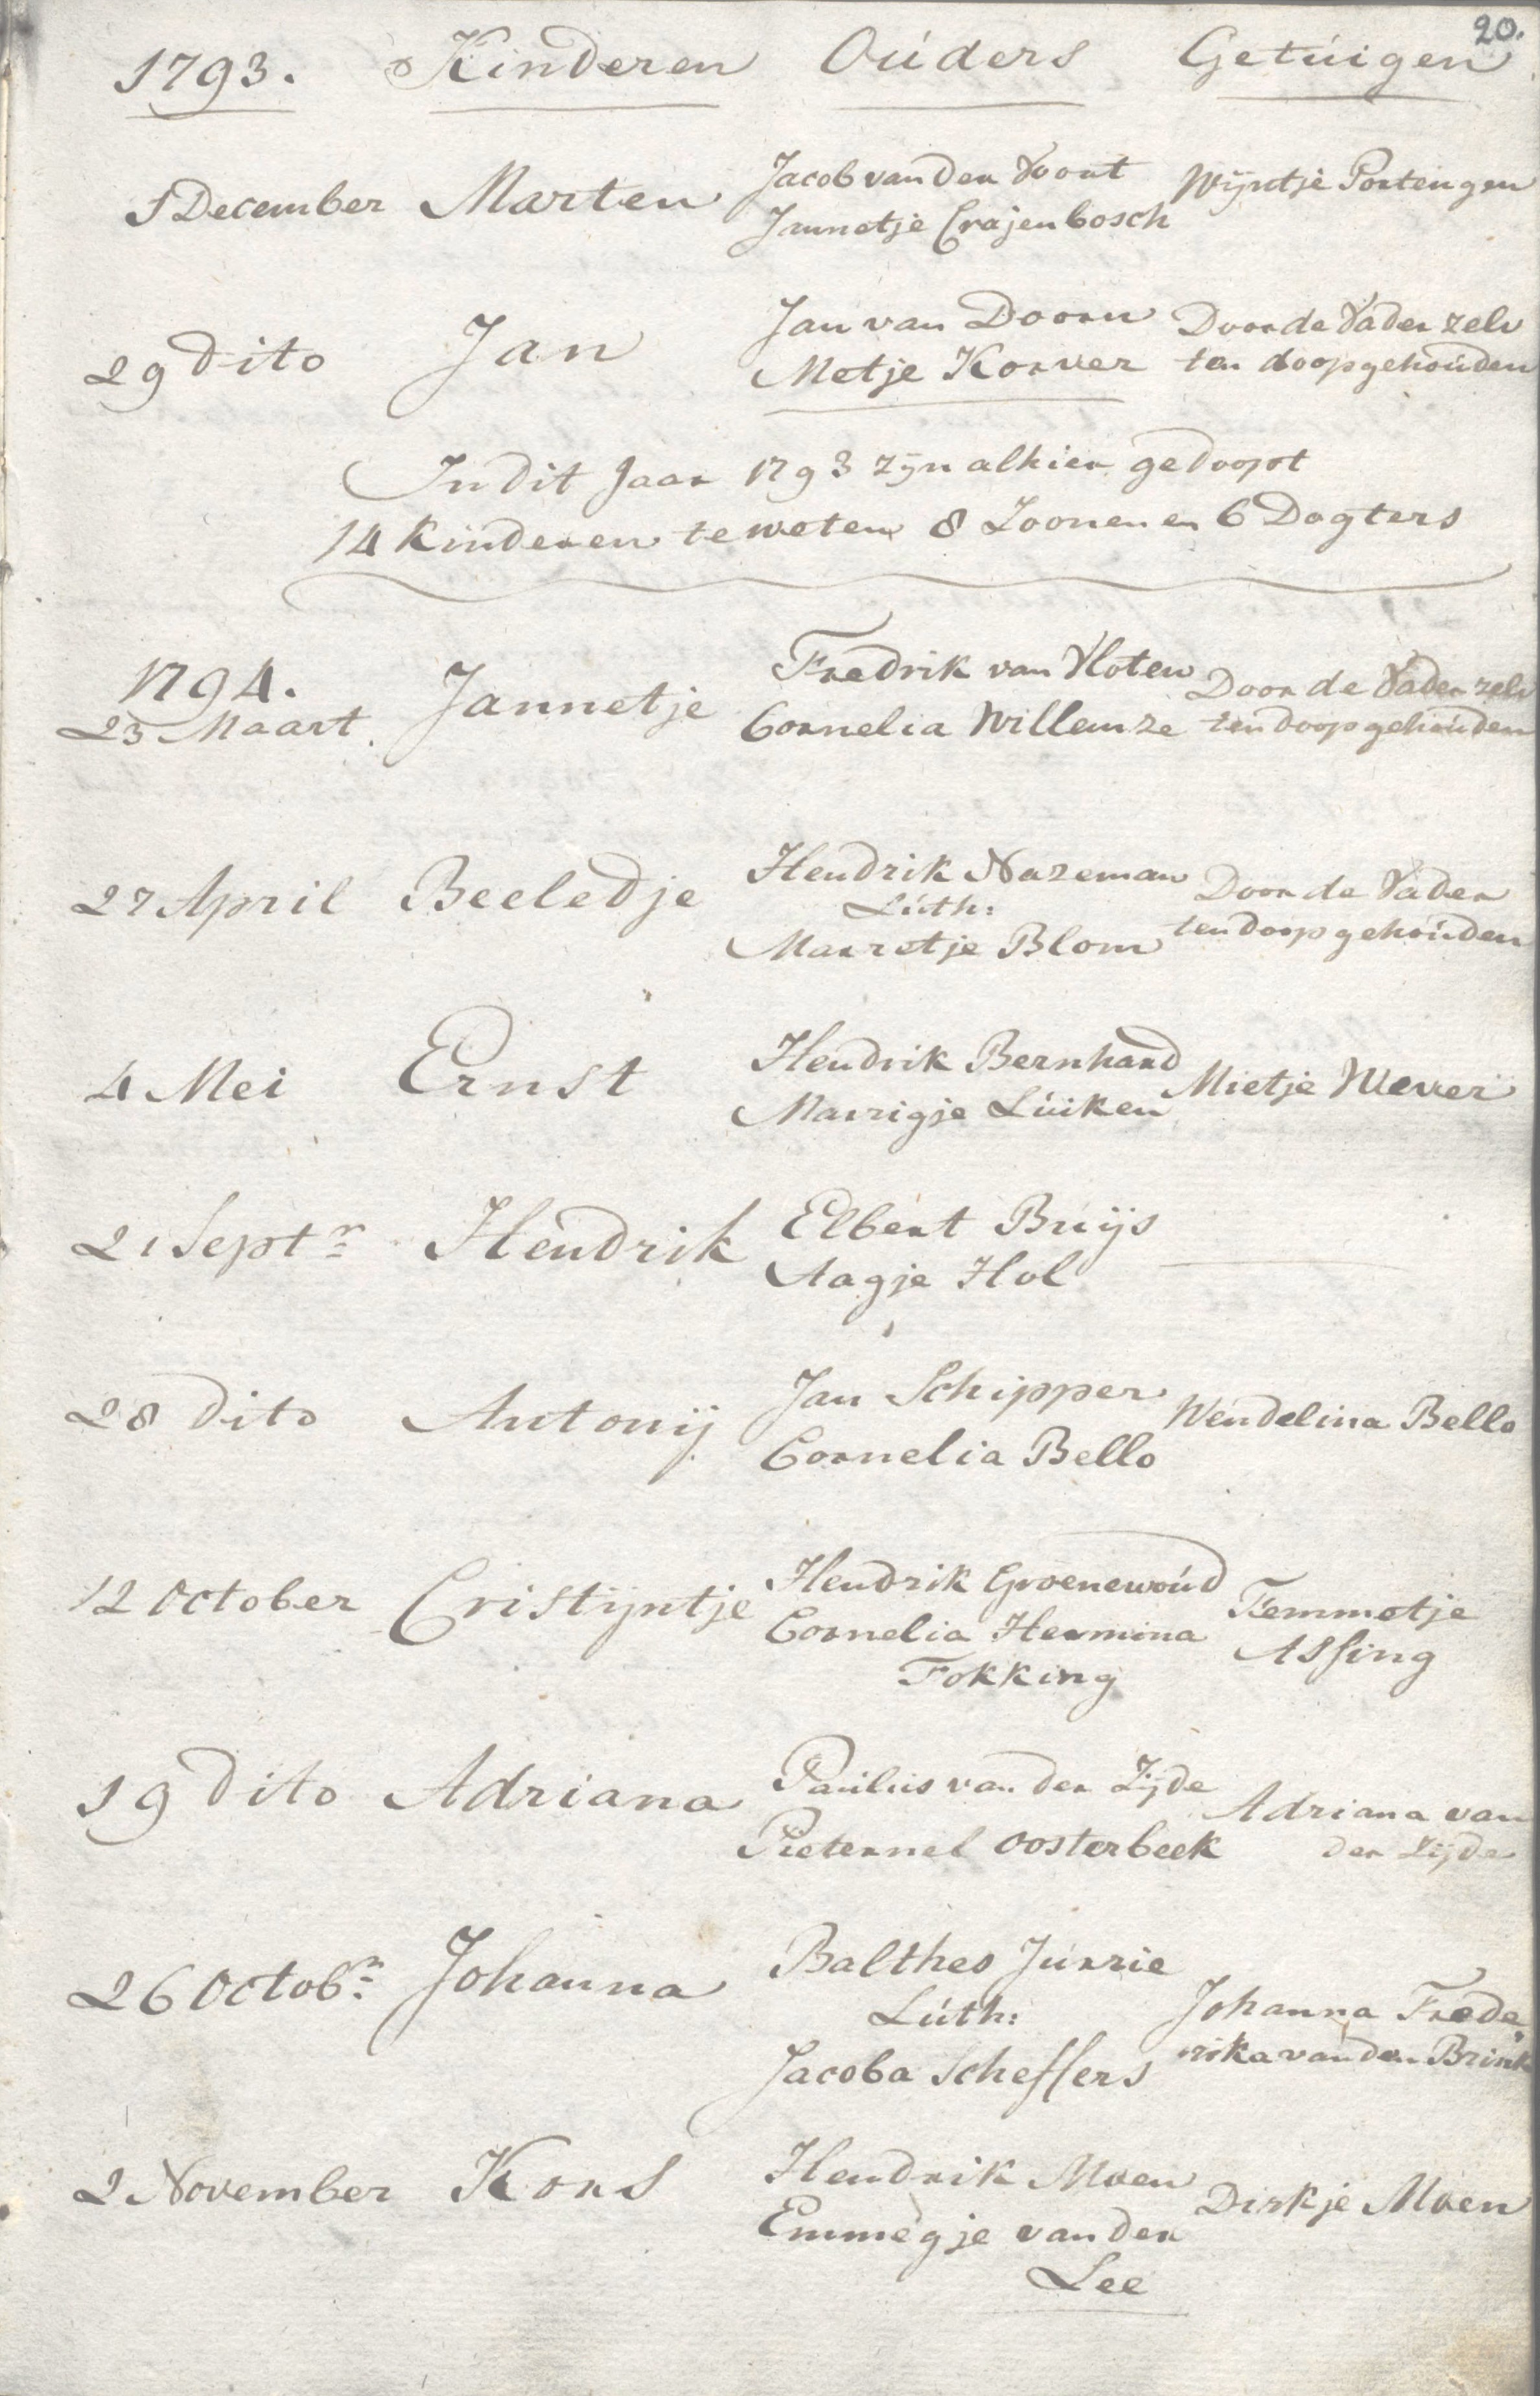 20.
1793. Kinderen Ouders Getuigen
1 December Marten Jacob van der Voort Wijntje Portengen
Jannetje Crajenbosch
29 dito Jan Jan van Doorn Door de Vader zelv
Metje Korver ten doop gehouden
In dit Jaar 1793 zyn alhier gedoopt
14 Kinderen te weten 8 Zoonen en 6 Dogters
1794.
23 Maart Jannetje Fredrik van Vloten Door de Vader zelv
Cornelia Willemze ten doop gehouden
27 April Beeledje Hendrik Nazeman Door de Vader
Luth: ten doop gehouden
Marretje Blom
4 Mei Ernst Hendrik Bernhard Mietje Wever
Marrigje Luiken
21 Septr Hendrik Elbert Buijs
Aagje Hol
28 dito Antonij Jan Schipper Wendelina Bello
Cornelia Bello
12 October Cristijntje Hendrik Groenewoud Femmetje
Cornelia Hermina Assing
Fokking
19 dito Adriana Paulus van der Zijde Adriana van
Pieternel Oosterbeek der Zijde
26 Octobr: Johanna Balthes Jurrie
Luth: Johanna Frede„
Jacoba Scheffers „rika van den Brink
2 November Kors Hendrik Moen Dirkje Moen
Emmegje van der
Lee